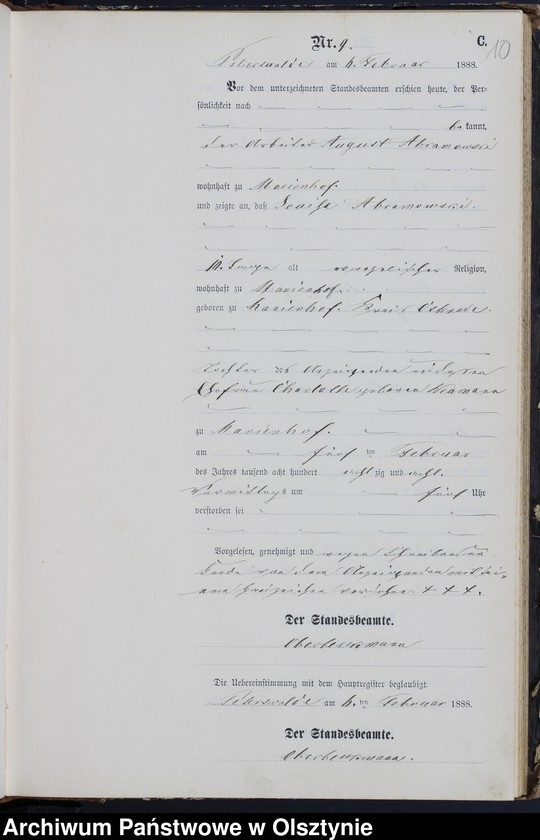 Nr. 9.
C.
10
am 6. Februar 1888.
Vor dem unterzeichneten Standesbeamten erschien heute, der Per-
sönlichkeit nach
be kannt,
der Arbeiter August Abramowski
wohnhaft zu Marienhof.
und zeigte an, daß Louise Abramowski.
10. Tage alt evangelischer Religion,
wohnhaft zu Marienhof.
geboren zu Marienhof. Kreis Osterode.
Tochter des Anzeigenden und dessen
Ehefrau Charlotte geborene
zu Marienhof.
am fünf ten Februar
des Jahres tausend acht hundert acht zig und acht.
Vormittags um fünf Uhr
verstorben sei
Vorgelesen, genehmigt und wegen Schreibensun
kunde von dem Anzeigenden mit sei-
nem Handzeichen versehen. + + +.
Der Standesbeamte.
Die Uebereinstimmung mit dem Hauptregister beglaubigt.
am 6. ten Februar 1888.
Der Standesbeamte.
Archiwum Państwowe w Olsztynie